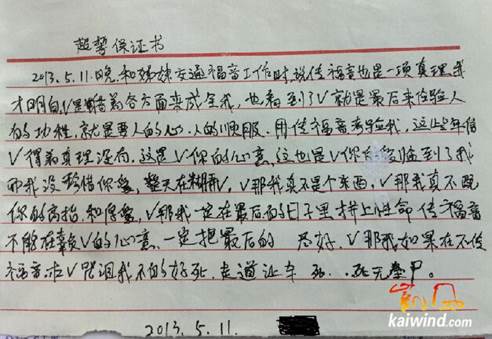 起誓保证书
2013.5.11.晚.和姊妹交通福音工作时,说传福音也是一项真理,我
才明白,V是借着各方面来成全我,也看到了V就是最后来住验人
的功性,就是要人的心,人的顺服.用传福音考验我,这些年信
V得着真理没有,这是V你的心意,这也是V你 临到了我
而我没珍惜你爱,整天在糊弄,V那我真不是个东西,V那我真不配
你的高抬,和厚爱,V那我一定在最后的日子里拼上性命传福音
不能在辜负V的心意.一定把最后的 尽好.V那,我如果在不传
福音求V咒诅我不的好死,走道让车 死无 。
2013.5.11.
kaiwind.com